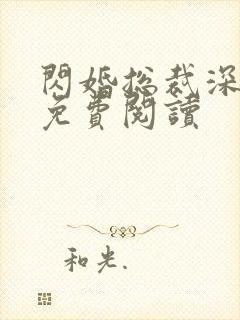 閃婚總裁深
免費閱讀
和光.